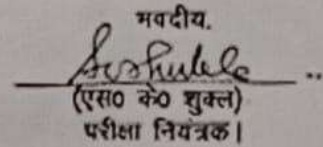 भवदीय.
(एस० के० शुक्ल)
परीक्षा नियंत्रक।